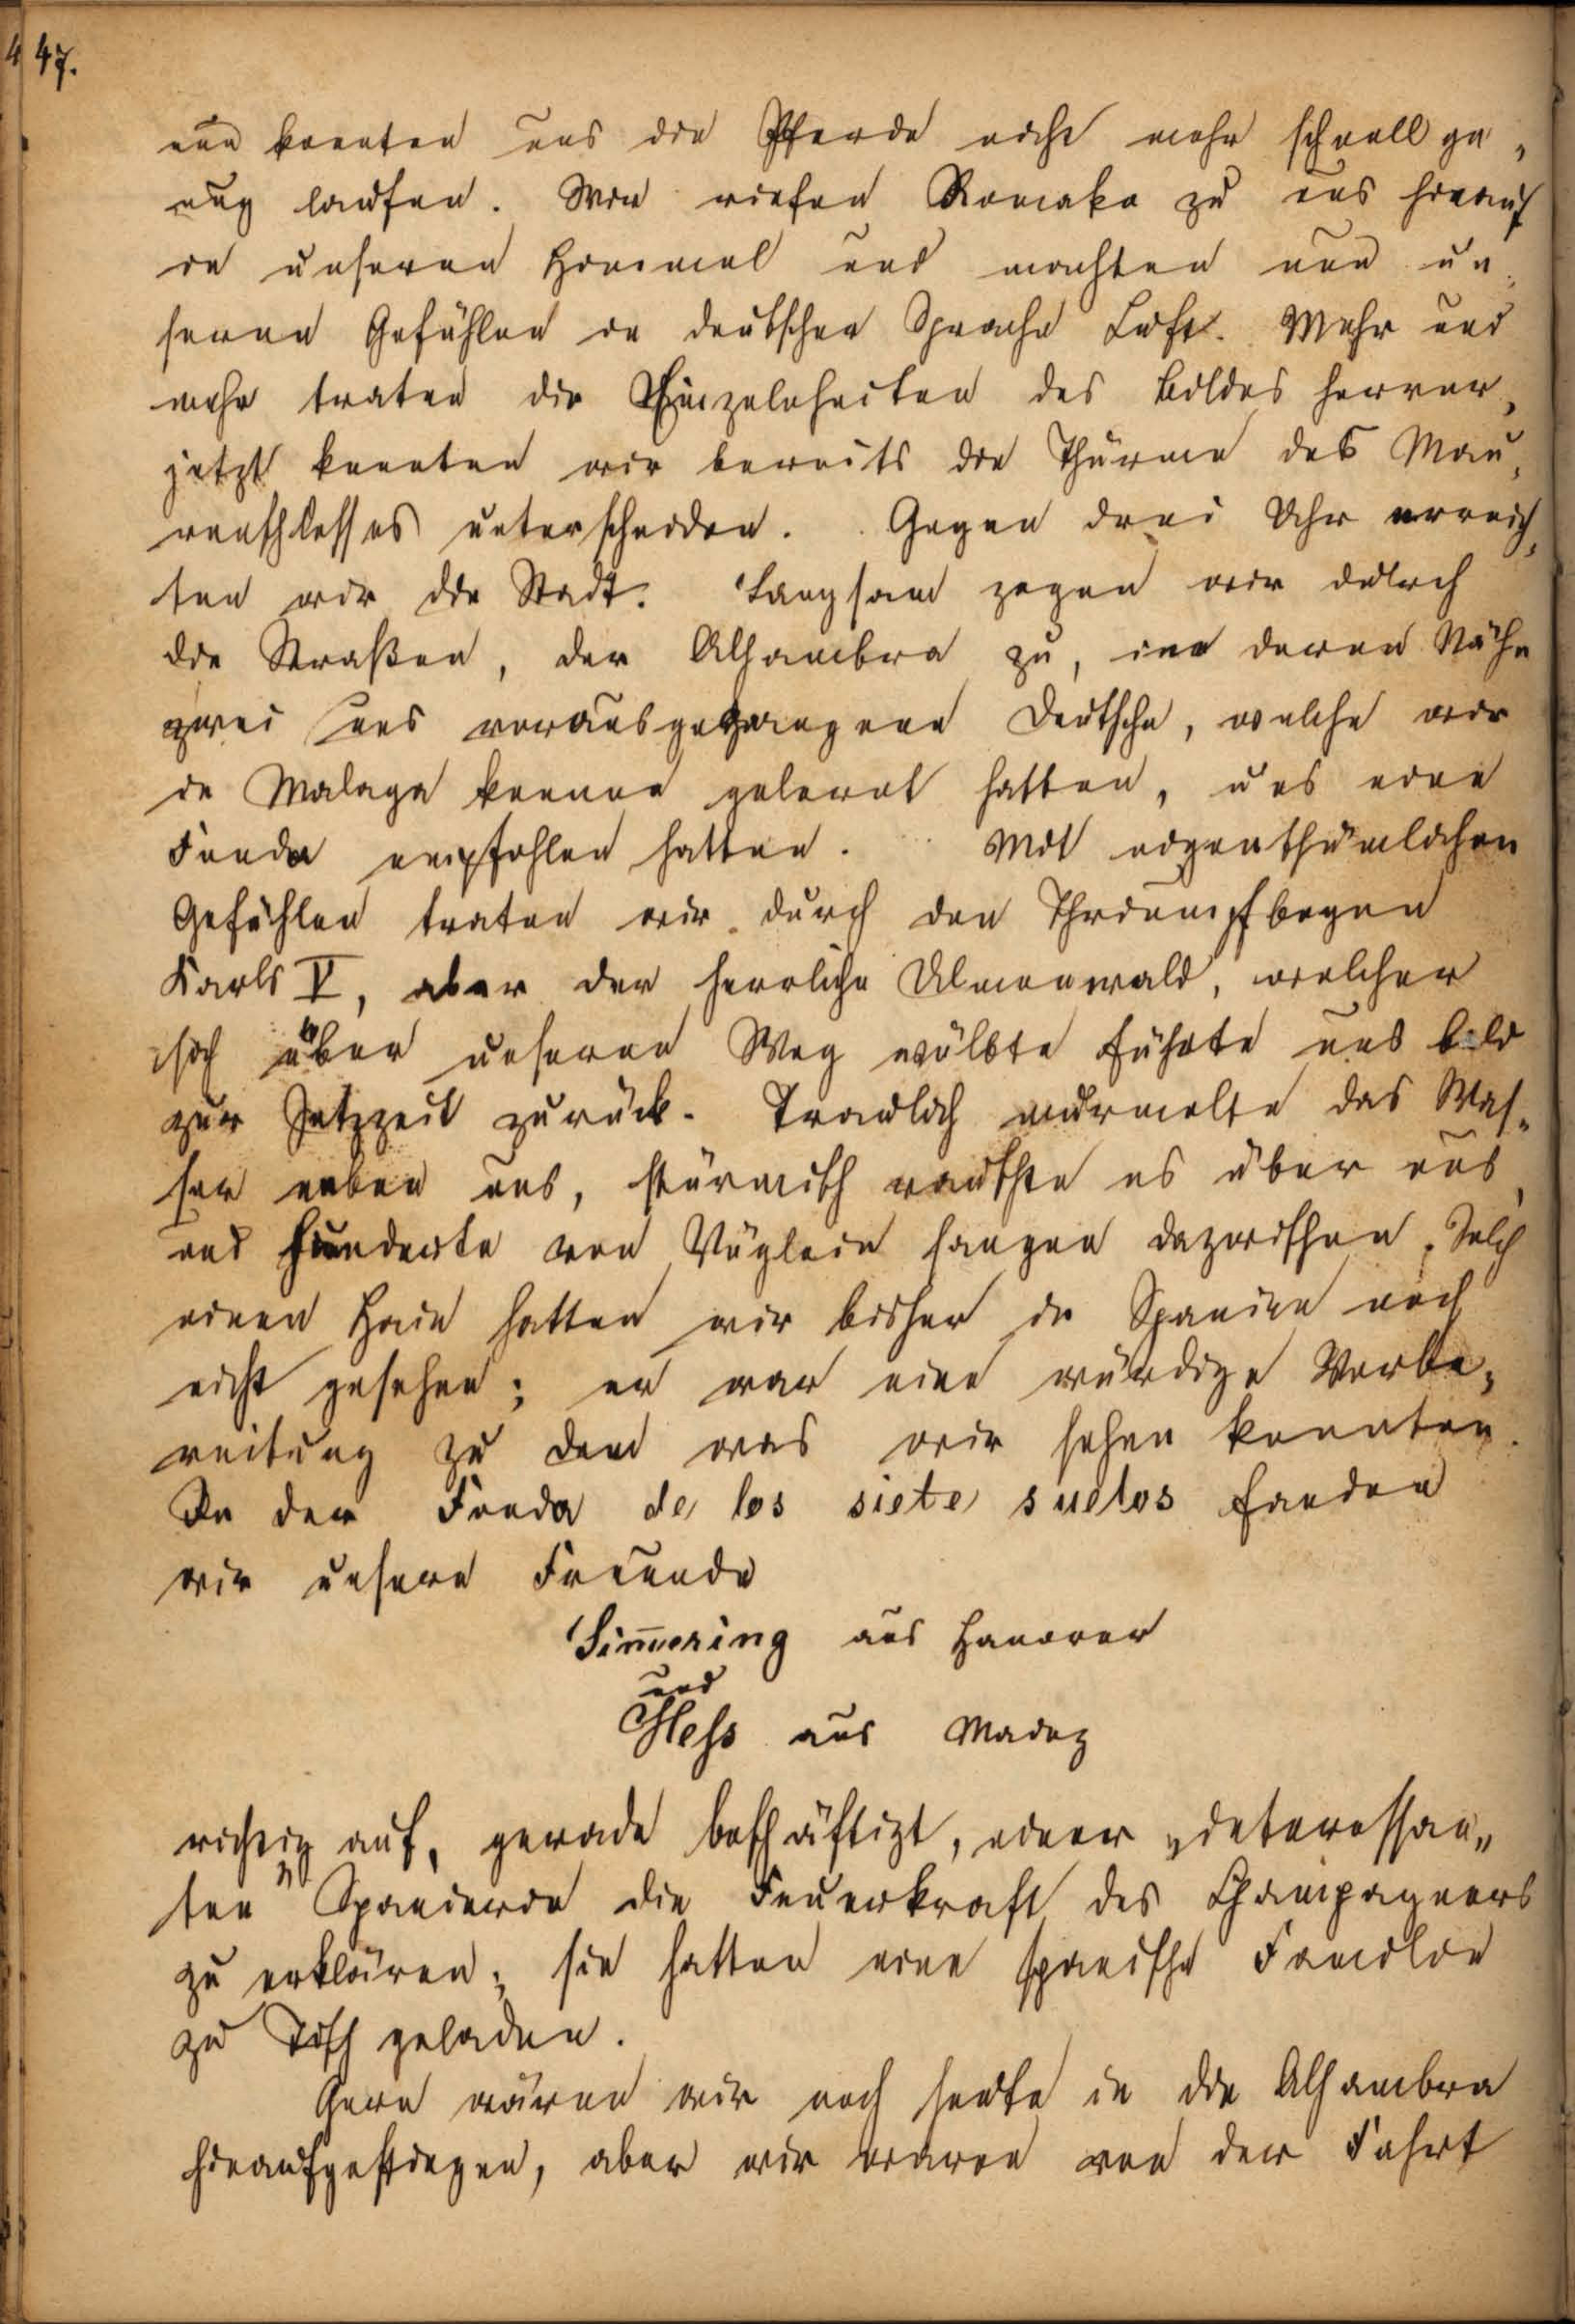 447.
nun konnten uns die Pferde nicht mehr schnell ge-
nug laufen. Wir riefen Romako zu uns hinauf
in unseren Himmel und machten nun un-
seren Gefühlen in deutscher Sprache Luft. Mehr und
mehr traten die Einzelnheiten des Bildes hervor,
jetzt konnten wir bereits die Thürme des Mau-
renschlosses unterscheiden. Gegen drei Uhr erreich-
ten wir die Stadt. Langsam zogen wir durch
die Straßen, der Alhambra zu, in deren Nähe
zwei uns vorausgegangene Deutsche, welche wir
in Malaga kennen gelernt hatten, uns eine
Fonda empfohlen hatten. Mit eigenthümlichen
Gefühlen traten wir durch den Thriumpfbogen
Karls V, aber der herrliche Ulmenwald, welcher
sich über unseren Weg wölbte führte uns bald
zur Jetzzeit zurück. Traulich murmelte das Was-
ser neben uns, stürmisch rauschte es über uns,
und Hunderte von Vöglein sangen dazwischen. Solch
einen Hain hatten wir bisher in Spanien noch
nicht gesehen; er war eine würdige Vorbe-
reitung zu dem was wir sehen konnten.
In der Fonda de los siete suelos fanden
wir unsere Freunde
Sim̅ering aus Hanover
und
Hess aus Mainz
richtig auf, gerade beschäftigt, einer „interessan-
ten" Spanierin die Feuerkraft des Champagners
zu erklären; sie hatten eine spanische Familie
zu Tisch geladen.
Gern wären wir noch heute in die Alhambra
hinaufgestiegen, aber wir waren von der Fahrt